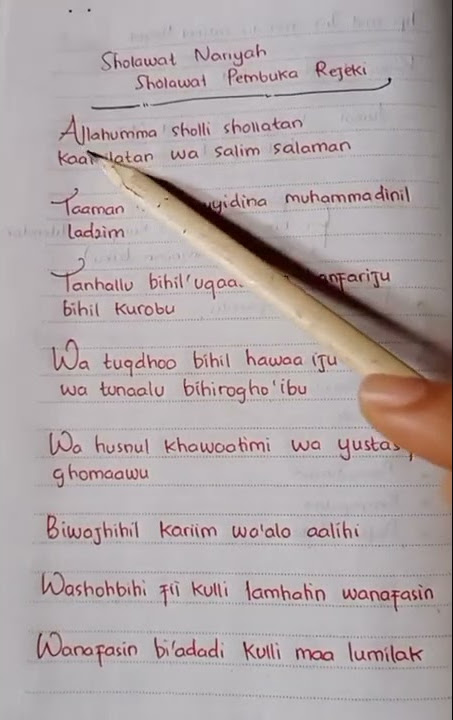 Sholawat Nariyah
Sholawat Pembuka Rejeki
Allahumma sholli shollatan
wa salim salaman
Taaman muhammadinil
ladzim
Tanhallu bihil'uqa
bihil Kurobu
Wa tuqdhoo bihil hawaa iju
wa tunaalu bihirogho'ibu
Wa husnul khawaatimi wa
ghomaawu
Biwajhihil kariim wa'alo aalihi
Washohbihi fii kulli lamhatin wanafasin
Wanafasin bi'adadi kulli maa lumilak